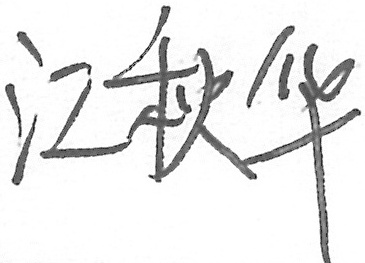 江秋华